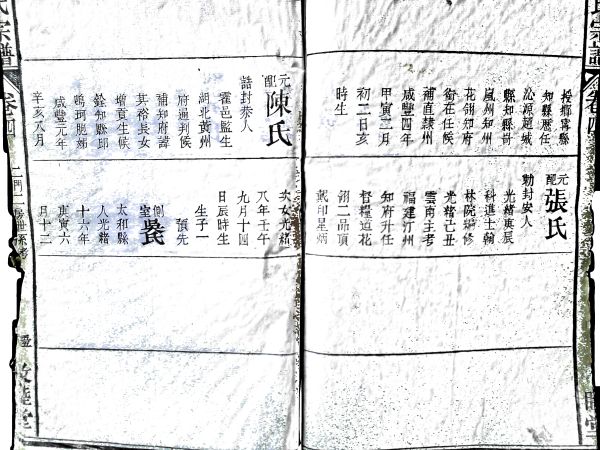 授鄉寗縣
知縣歷任
沁源趙城
縣知縣哥
嵐州知州
花翎知府
銜在任候
補直隸州
咸豐四年
甲寅三月
初二日亥
時生
元配張氏
勅封安人
光緒庚辰
科進士翰
林院編修
光緒己丑
雲南主考
福建汀州
知府升任
督糧道花
翎二品頂
戴印星炳
元配陳氏
誥封恭人
霍邑監生
湖北黃州
府通判候
補知府諱
其裕長女
增貢生候
銓知縣邱
鳴珂胞姊
咸豐元年
辛亥八月
次女光緒
八年壬午
九月十四
日辰時生
生子一
預先
側室吳氏
太和縣
人光緒
十六年
庚寅六
月十二
氏宗譜
卷四
敦睦堂